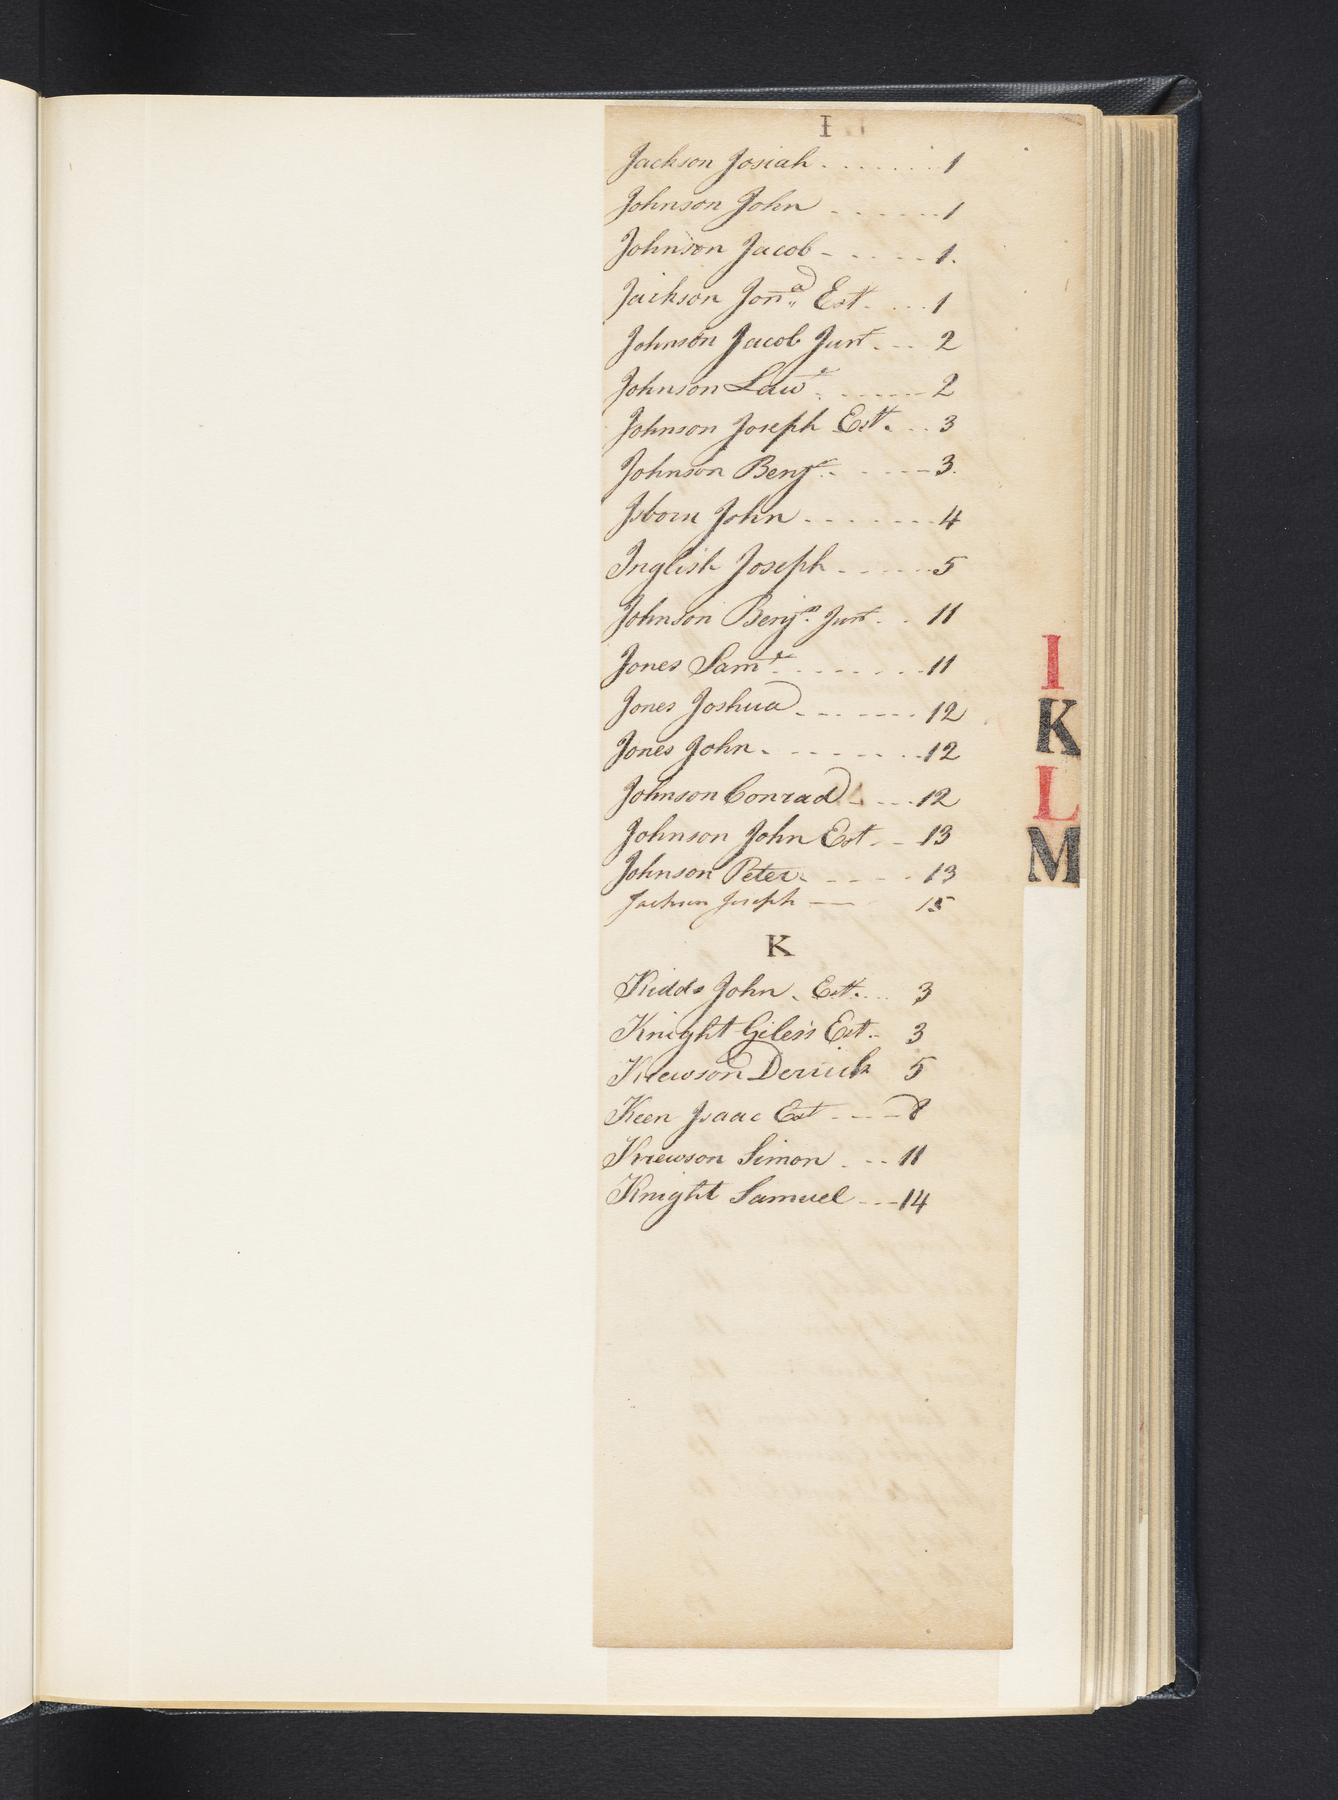 I
Jackson Josiah . . . . . . . 1
Johnson John . . . . . . 1
Johnson Jacob - . . . . . 1.
Jackson Jonᵃ Est. . . . 1
Johnson Jacob Junr. . . 2
Johnson Lawr. . . . . . 2
Johnson Joseph Est. . . 3
Johnson Benjn. . . . . . 3.
Isborn John . . . . . . . 4
Inglish Joseph . . . . . 5
Johnson Benjn. Junr. . . 11
Jones Saml. . . . . . . . 11
Jones Joshua . . . . . . 12
Jones John . . . . . . . 12
Johnson Conrad . . . 12
Johnson John Est. . 13
Johnson Peter . . . . . 13
Jackson Joseph — 15
K
Kidds John . Est. . . 3
Knight Giles's Est. . 3
Krewson Derrick 5
Keen Isaac Est . . . 8
Krewson Simon . . . 11
Knight Samuel . . . 14
I
K
L
M